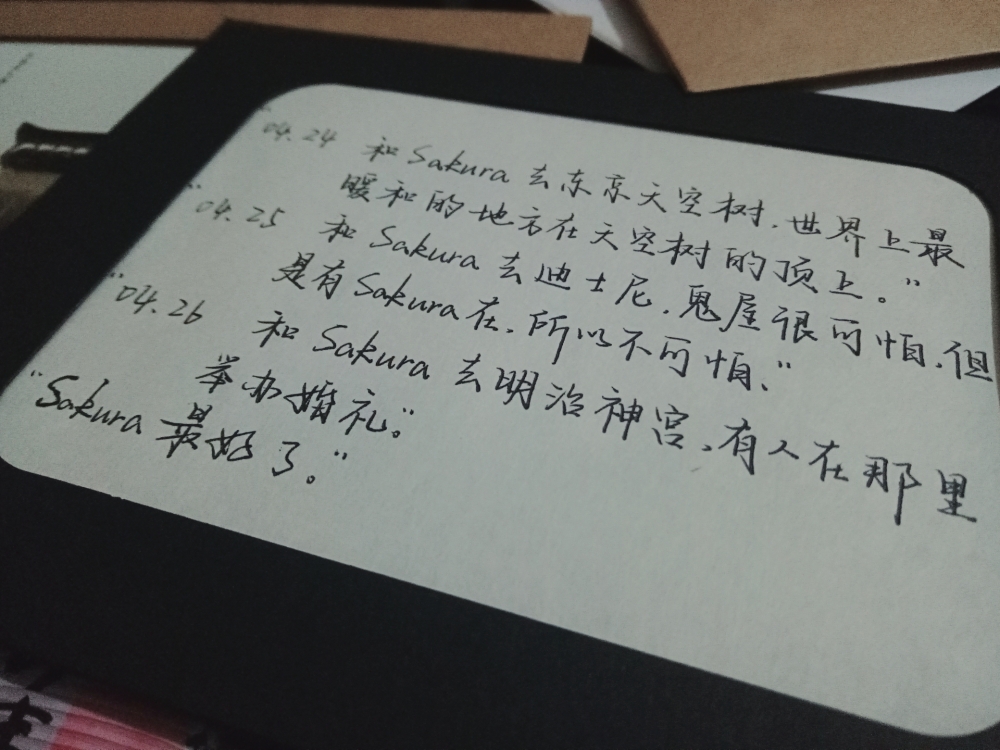 "04.24 和Sakura去东京天空树，世界上最
暖和的地方在天空树的顶上。"
"04.25 和Sakura去迪士尼，鬼屋很可怕，但
是有Sakura在，所以不可怕。"
"04.26 和Sakura去明治神宫，有人在那里
举办婚礼。"
"Sakura最好了。"